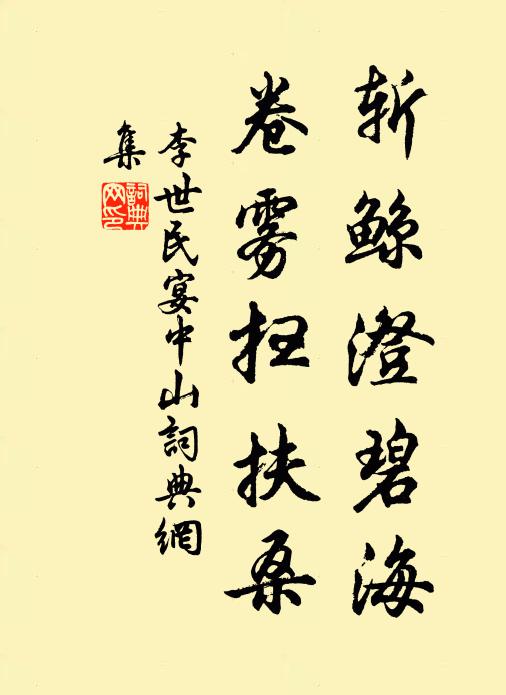 斩鲸澄碧海
卷雾扫扶桑
李世民宴中山詞典網
集
詞典网印